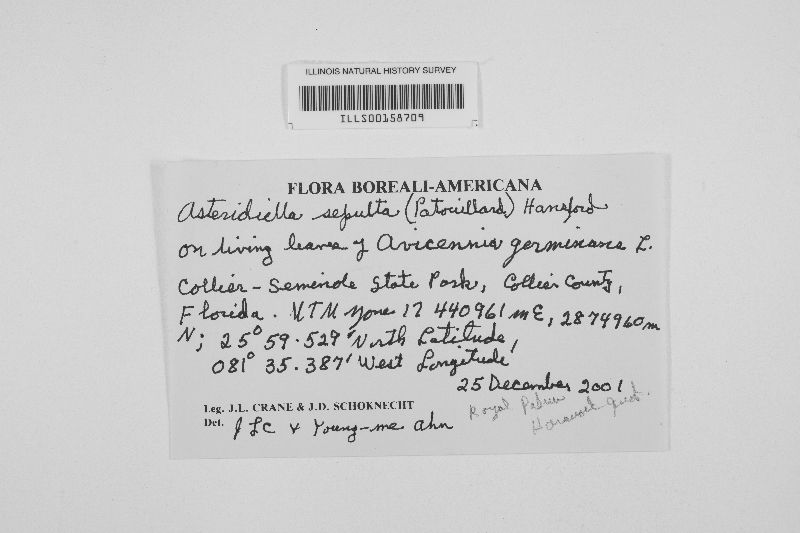 ILLINOIS NATURAL HISTORY SURVEY
ILLS00158709
FLORA BOREALI-AMERICANA
Asteridiella sepulta (Patouillard) Hansford
on living leaves of Avicennia germinans L.
Collier-Seminole State Park, Collier County,
Florida. UTM Zone 17 440961 mE, 2874960m
N; 25° 59.529' North Latitude,
081° 35.387' West Longitude
25 December 2001
Leg. J.L. CRANE & J.D. SCHOKNECHT
Royal Palm
Det. JLC & Young-me Ahn
Hammock quad.